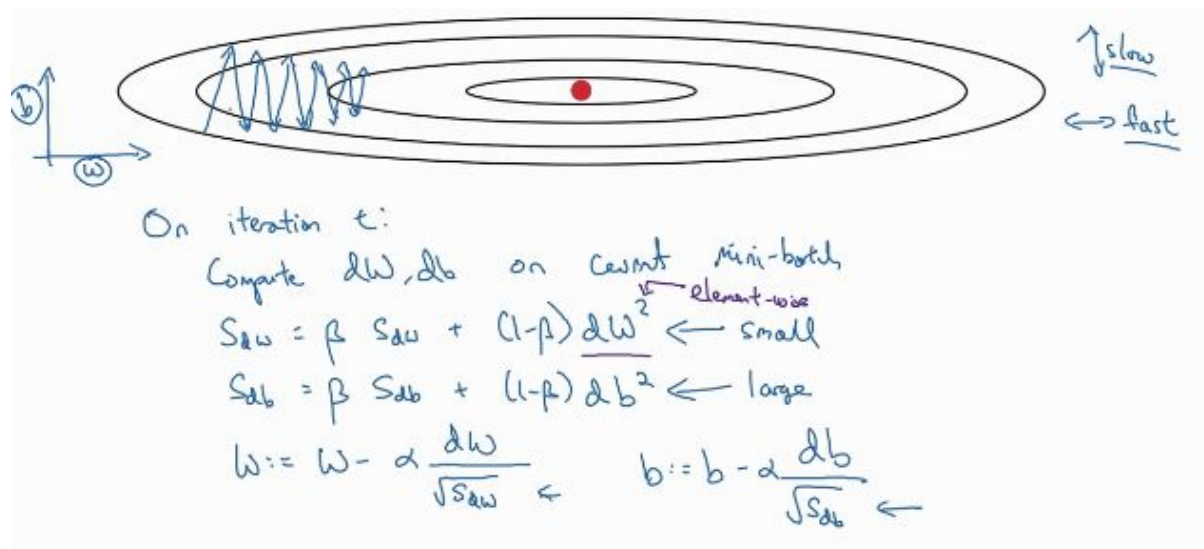 b
w
↕ slow
↔ fast
On iteration t:
Compute dW, db on current mini-batch
element-wise
Sdw = β Sdw + (1-β) dW² ← small
Sdb = β Sdb + (1-β) db² ← large
W := W - α dW/√Sdw ← b := b - α db/√Sdb ←